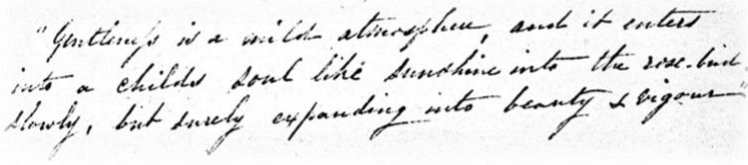 "Gentleness is a mild atmosphere, and it enters
into a childs soul like sunshine into the rose-bud,
slowly, but surely expanding into beauty & vigour"